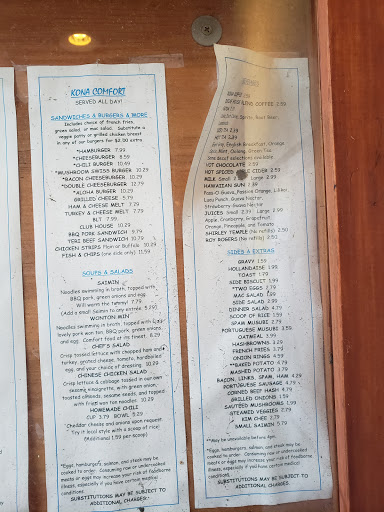 KONA COMFORT
SERVED ALL DAY!
SANDWICHES & BURGERS & MORE
Includes choice of french fries,
green salad, or mac salad. Substitute a
veggie patty or grilled chicken breast
in any of our burgers for $2.00 extra
*HAMBURGER 7.99
*CHEESEBURGER 8.59
*CHILI BURGER 10.49
*MUSHROOM SWISS BURGER 10.29
*BACON CHEESEBURGER 10.79
*DOUBLE CHEESEBURGER 12.79
*ALOHA BURGER 10.29
GRILLED CHEESE 5.79
HAM & CHEESE MELT 7.79
TURKEY & CHEESE MELT 7.79
BLT 7.99
CLUB HOUSE 10.29
BBQ PORK SANDWICH 9.79
TERI BEEF SANDWICH 10.79
CHICKEN STRIPS Plain or Buffalo 10.29
FISH & CHIPS (one side only) 11.59
SOUPS & SALADS
SAIMIN
Noodles swimming in broth, topped with
BBQ pork, green onions and egg.
Will warm the tummy! 7.79
(Add a small Saimin to any entrée 5.29)
WONTON MIN
Noodles swimming in broth, topped with
lovely pork won ton, BBQ pork, green onions
and egg. Comfort food at its finest. 8.29
CHEF'S SALAD
Crisp tossed lettuce with chopped ham and
turkey, grated cheese, tomato, hardboiled
egg, and your choice of dressing. 10.29
CHINESE CHICKEN SALAD
Crisp lettuce & cabbage tossed in our own
sesame vinaigrette, with green onion,
toasted almonds, sesame seeds, and topped
with fried won ton noodles. 10.29
HOMEMADE CHILI
CUP 3.79 BOWL 5.29
Cheddar cheese and onions upon request
Try it local style with a scoop of rice!
(Additional 1.59 per scoop)
*Eggs, hamburgers, salmon, and steak may be
cooked to order. Consuming raw or undercooked
meats or eggs may increase your risk of foodborne
illness, especially if you have certain medical
conditions.
SUBSTITUTIONS MAY BE SUBJECT TO
ADDITIONAL CHARGES.
COFFEE 2.59
Root Beer,
English Breakfast, Orange,
Mint, Oolong, Green Tea
selections available
HOT CHOCOLATE 2.59
HOT SPICED CIDER 2.59
MILK Small Large 2.99
HAWAIIAN SUN 1.39
Pass-O-Guava, Passion Orange, Lilikoi,
Luau Punch, Guava Nectar,
Strawberry-Guava Nectar
JUICES Small 2.59 Large 2.99
Apple, Cranberry, Grapefruit,
Orange, Pineapple, and Tomato
SHIRLEY TEMPLE (No refills) 2.50
ROY ROGERS (No refills) 2.50
SIDES & EXTRAS
GRAVY 1.59
HOLLANDAISE 1.99
TOAST 1.79
SIDE BISCUIT 1.99
*TWO EGGS 2.79
MAC SALAD
SIDE SALAD
DINNER SALAD 4.79
SCOOP OF RICE 1.59
SPAM MUSUBI 2.79
PORTUGUESE MUSUBI 3.59
OATMEAL 3.99
HASHBROWNS 3.29
FRENCH FRIES 3.79
ONION RINGS 4.59
**BAKED POTATO 4.79
MASHED POTATO 3.79
BACON, LINKS, SPAM, HAM 4.29
PORTUGUESE SAUSAGE 4.79
CORNED BEEF HASH 4.79
GRILLED ONIONS 1.59
SAUTEED MUSHROOMS 1.99
STEAMED VEGGIES 2.79
KIM CHEE 2.79
SMALL SAIMIN 5.79
**May be unavailable before 4pm.
*Eggs, hamburgers, salmon, and steak may be
cooked to order. Consuming raw or undercooked
meats or eggs may increase your risk of foodborne
illness, especially if you have certain medical
conditions.
SUBSTITUTIONS MAY BE SUBJECT TO
ADDITIONAL CHARGES.